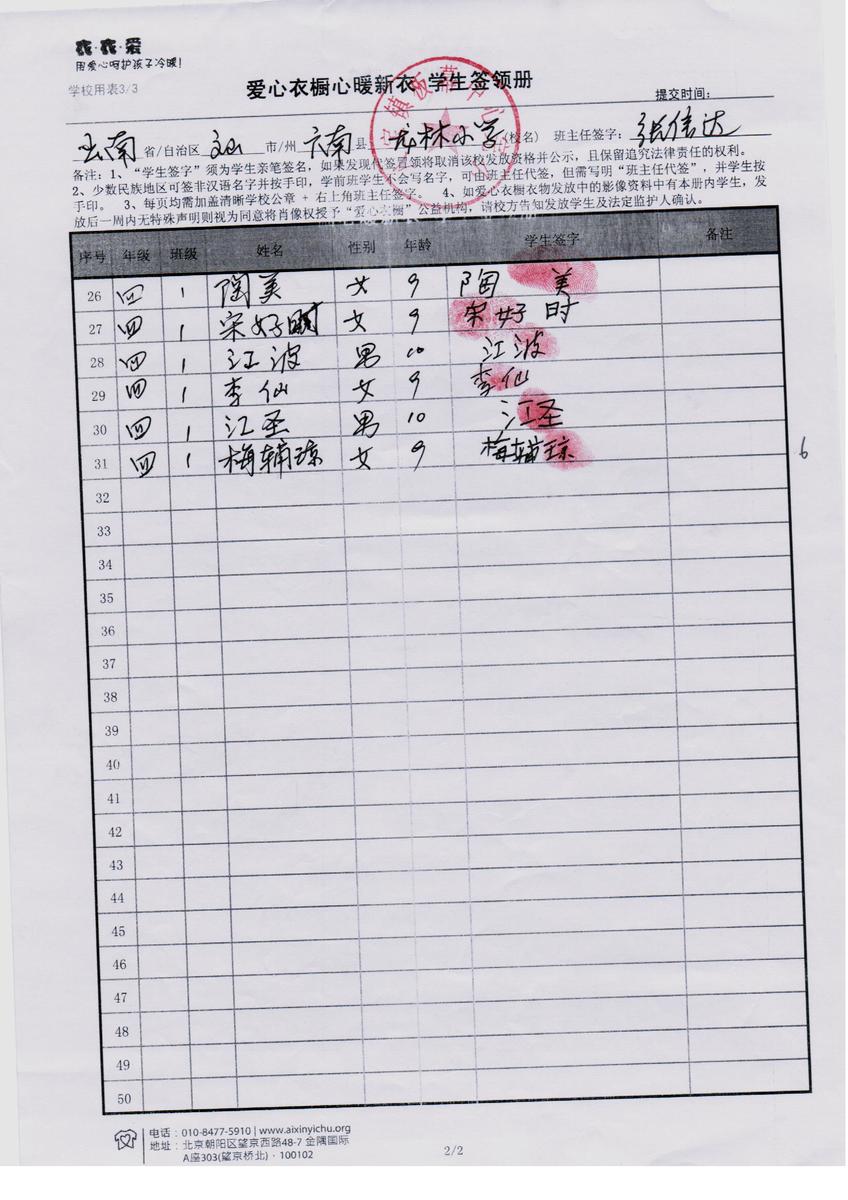 衣·衣·爱
用爱心呵护孩子冷暖!
学校用表3/3
爱心衣橱心暖新衣 学生签领册
提交时间:
云南 省/自治区 文山 市/州 广南 县 龙林小学 (校名) 班主任签字: 张信达
备注:1、“学生签字”须为学生亲笔签名,如果发现代签冒领将取消该校发放资格并公示,且保留追究法律责任的权利。
2、少数民族地区可签非汉语名字并按手印,学前班学生不会写名字,可由班主任代签,但需写明“班主任代签”,并学生按
手印。 3、每页均需加盖清晰学校公章 + 右上角班主任签字。 4、如爱心衣橱衣物发放中的影像资料中有本册内学生,发
放后一周内无特殊声明则视为同意将肖像权授予“爱心衣橱”公益机构,请校方告知发放学生及法定监护人确认。
序号 年级 班级 姓名 性别 年龄 学生签字 备注
26 四 1 陶美 女 9 陶 美
27 四 1 宋好时 女 9 宋好时
28 四 1 江波 男 10 江波
29 四 1 李仙 女 9 李仙
30 四 1 江圣 男 10 江圣
31 四 1 梅辅琼 女 9 梅辅琼
6
32
33
34
35
36
37
38
39
40
41
42
43
44
45
46
47
48
49
50
电话:010-8477-5910 | www.aixinyichu.org
地址:北京朝阳区望京西路48-7 金隅国际
A座303(望京桥北)·100102
2/2